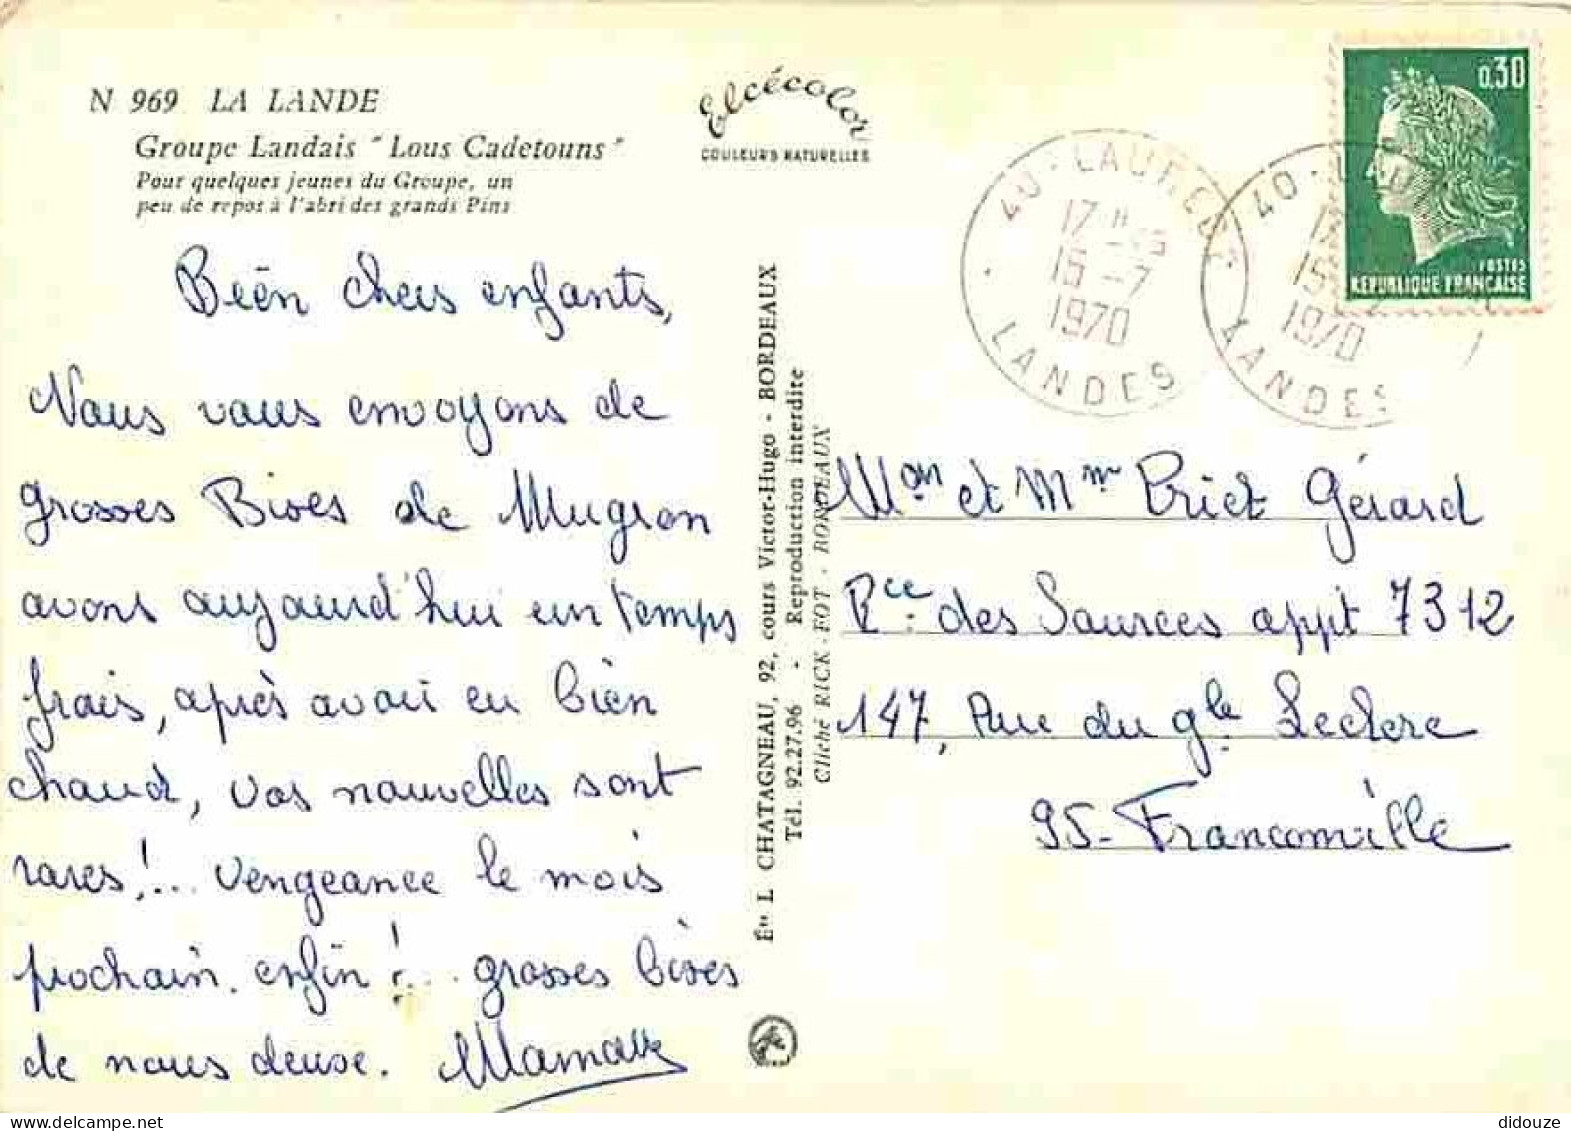 N 969 LA LANDE
Groupe Landais "Lous Cadetouns"
Pour quelques jeunes du Groupe, un
peu de repos à l'abri des grands Pins
Elcécolor
COULEURS NATURELLES
Bien chers enfants,
Nous vous envoyons de
grosses Bises de Mugron
avons aujourd'hui un temps
frais, après avoir eu bien
chaud, vos nouvelles sont
rares!... vengeance le mois
prochain. enfin!... grosses bises
de nous deuse.
Éts L CHATAGNEAU, 92, cours Victor-Hugo - BORDEAUX
Tél. 92.27.96 - Reproduction interdite
Cliché RICK. FOT. BORDEAUX
0,30
POSTES
REPUBLIQUE FRANÇAISE
17 H
15 -7
1970
LANDES
40
15
1970
LANDES
Mon et Mme Gérard
Rce des Sources appt 7312
147, Rue du gle Leclerc
95- Franconville
didouze